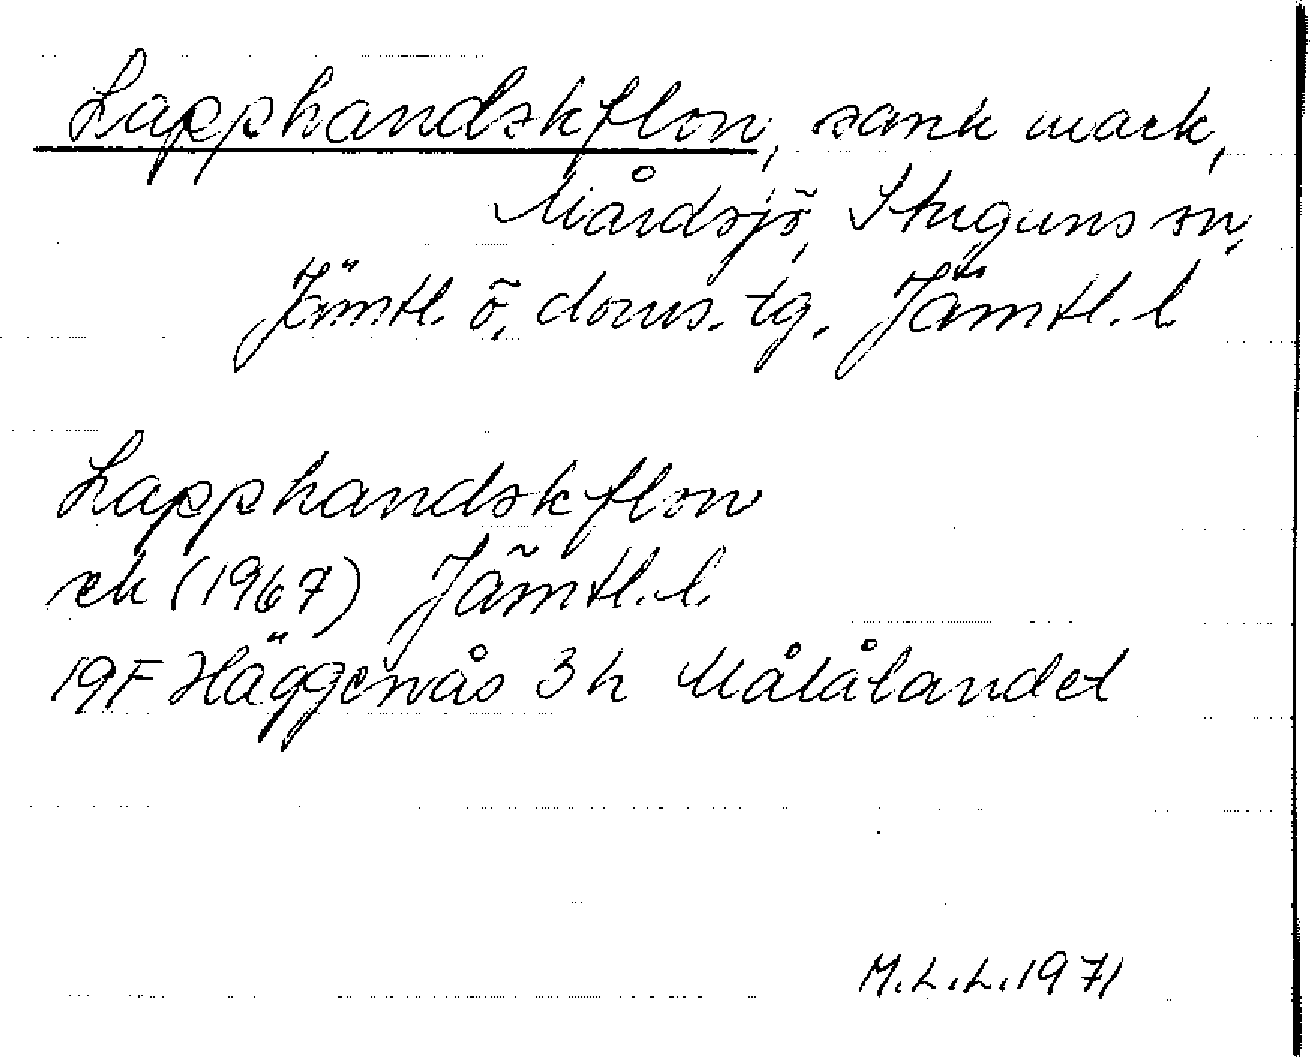 Lapphandskflon, sank mark,
Mårdsjö, Stuguns sn,
Jämtl. ö. doms. tg. Jämtl. l
Lapphandskflon
ek (1967) Jämtl. l.
19F Häggenås 3h Målålandet
M.L.L. 1971